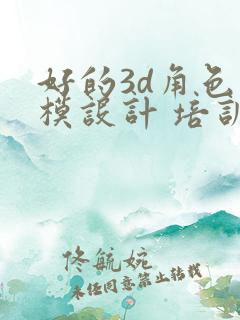 好的3d角色
模設計 培訓
佟航婉
未经同意禁止转载